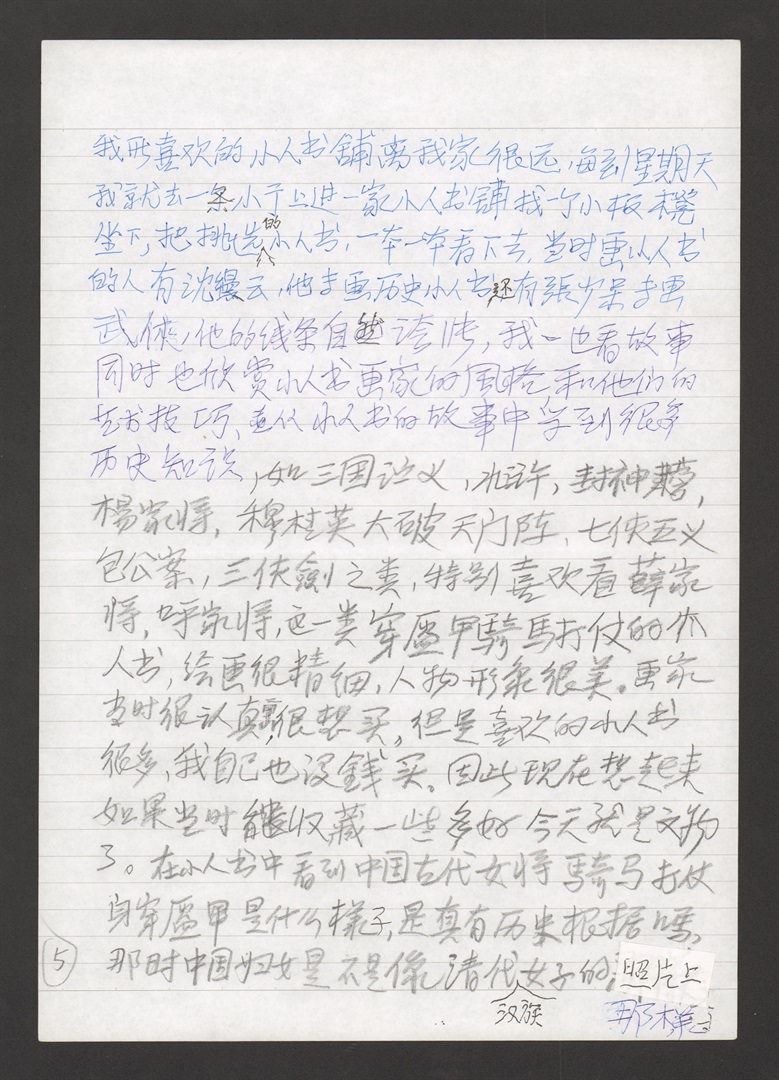 我所喜欢的小人书舖离我家很远,每到星期天
我就去一条小于上进一家小人书舖找一个小板櫈
坐下,把挑选的小人书,一本一本看下去,当时画小人书
的人有沈缦云,他专画历史小人书还有張少呆专画
武俠,他的线条自然流畅,我一边看故事
同时也欣赏小人书画家的風格,和他们的
艺术技巧,並从小人书的故事中学到很多
历史知识,如三国演义,水浒,封神榜,
楊家将,穆桂英大破天门阵、七侠五义
包公案,三侠劍之类,特别喜欢看薛家
将,呼家将,这一类穿盔甲騎馬打仗的小
人书,绘画很精细,人物形象很美。画家
当时很认真,很想买,但是喜欢的小人书
很多,我自己也没錢买。因此现在想起来
如果当时能收藏一些多好今天就是文物
了。在小人书中看到中国古代女将騎马打仗
身穿盔甲是什么樣子,是真有历史根据嗎?
那时中国妇女是不是像清代汉族女子的照片上
那樣
5